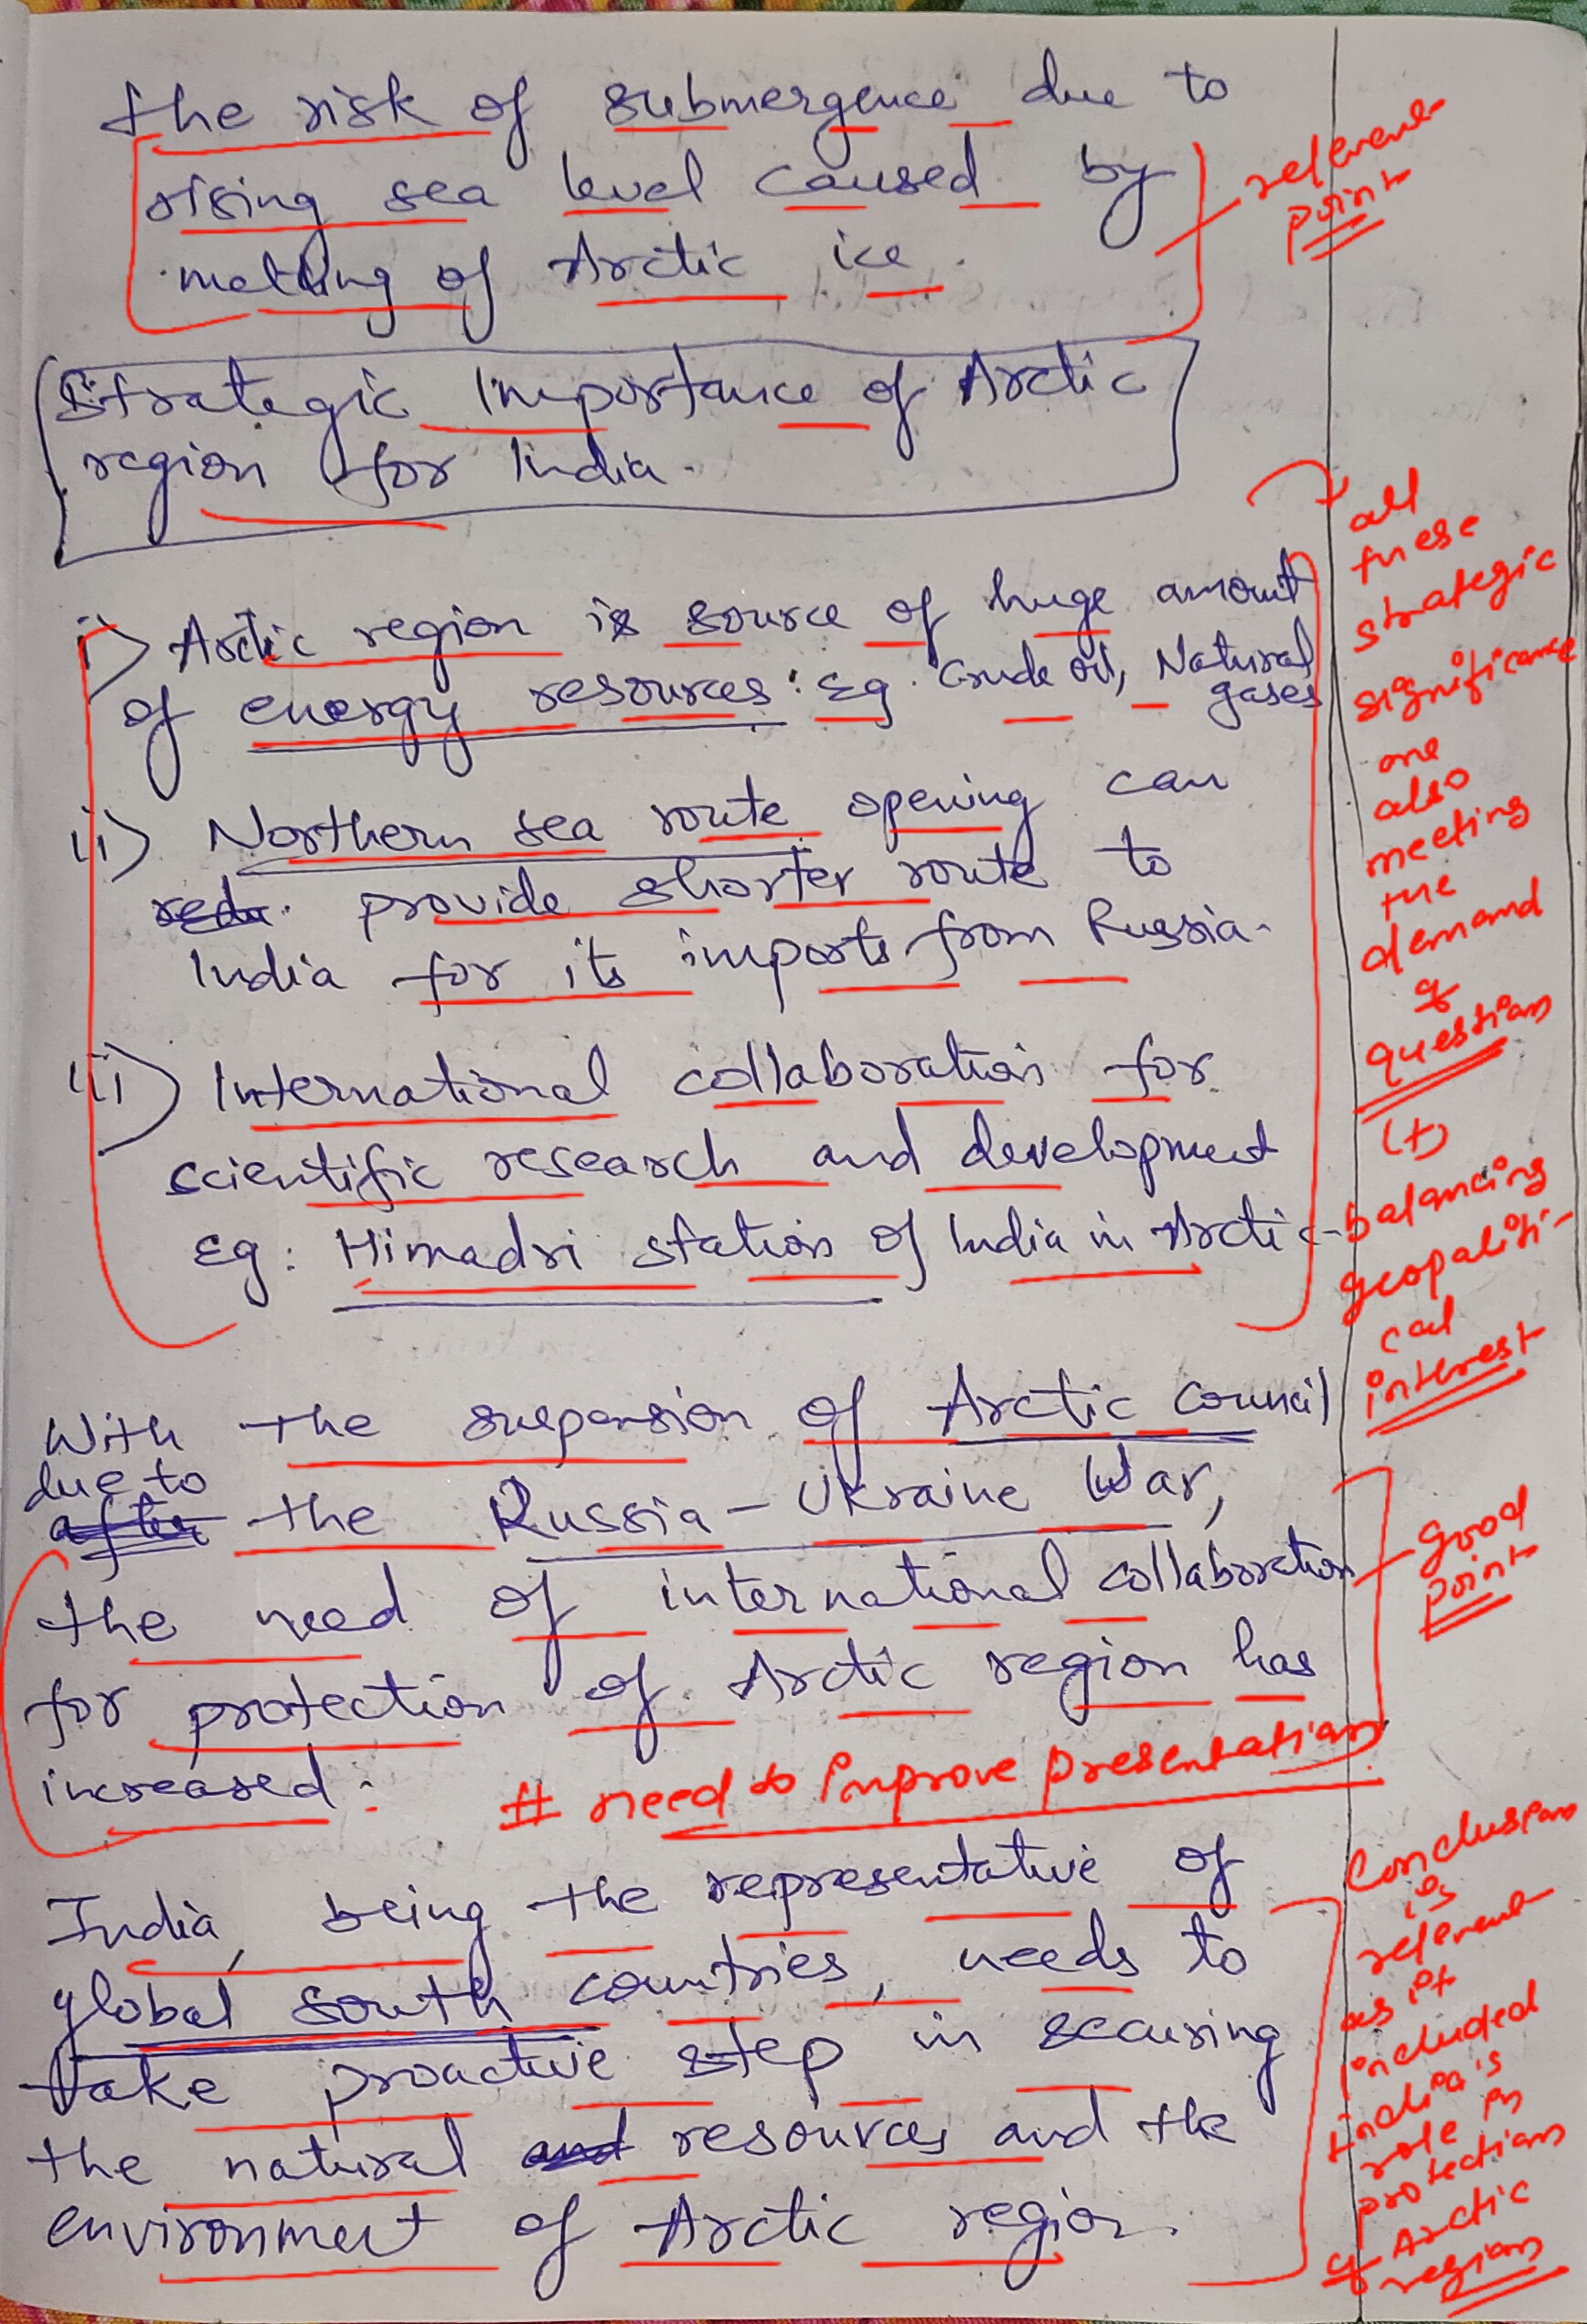 the risk of submergence due to
rising sea level caused by
melting of Arctic ice.
relevant
point
Strategic Importance of Arctic
region for India.
i) Arctic region is source of huge amount
of energy resources: Eg. Crude oil, Natural
gases
ii) Northern sea route opening can
provide shorter route to
India for its imports from Russia.
iii) International collaboration for
scientific research and development
Eg: Himadri station of India in Arctic
all
these
strategic
significance
are
also
meeting
the
demand
of
question
(+)
balancing
geopoliti-
cal
interest
With the suspension of Arctic Council
due to
after the Russia-Ukraine War,
the need of international collaboration
for protection of Arctic region has
increased:
good
point
# need to improve presentation
India, being the representative of
global south countries, needs to
take proactive step in securing
the natural and resources and the
environment of Arctic region.
Conclusion
is
relevant
as it
included
India's
role in
protection
of Arctic
region